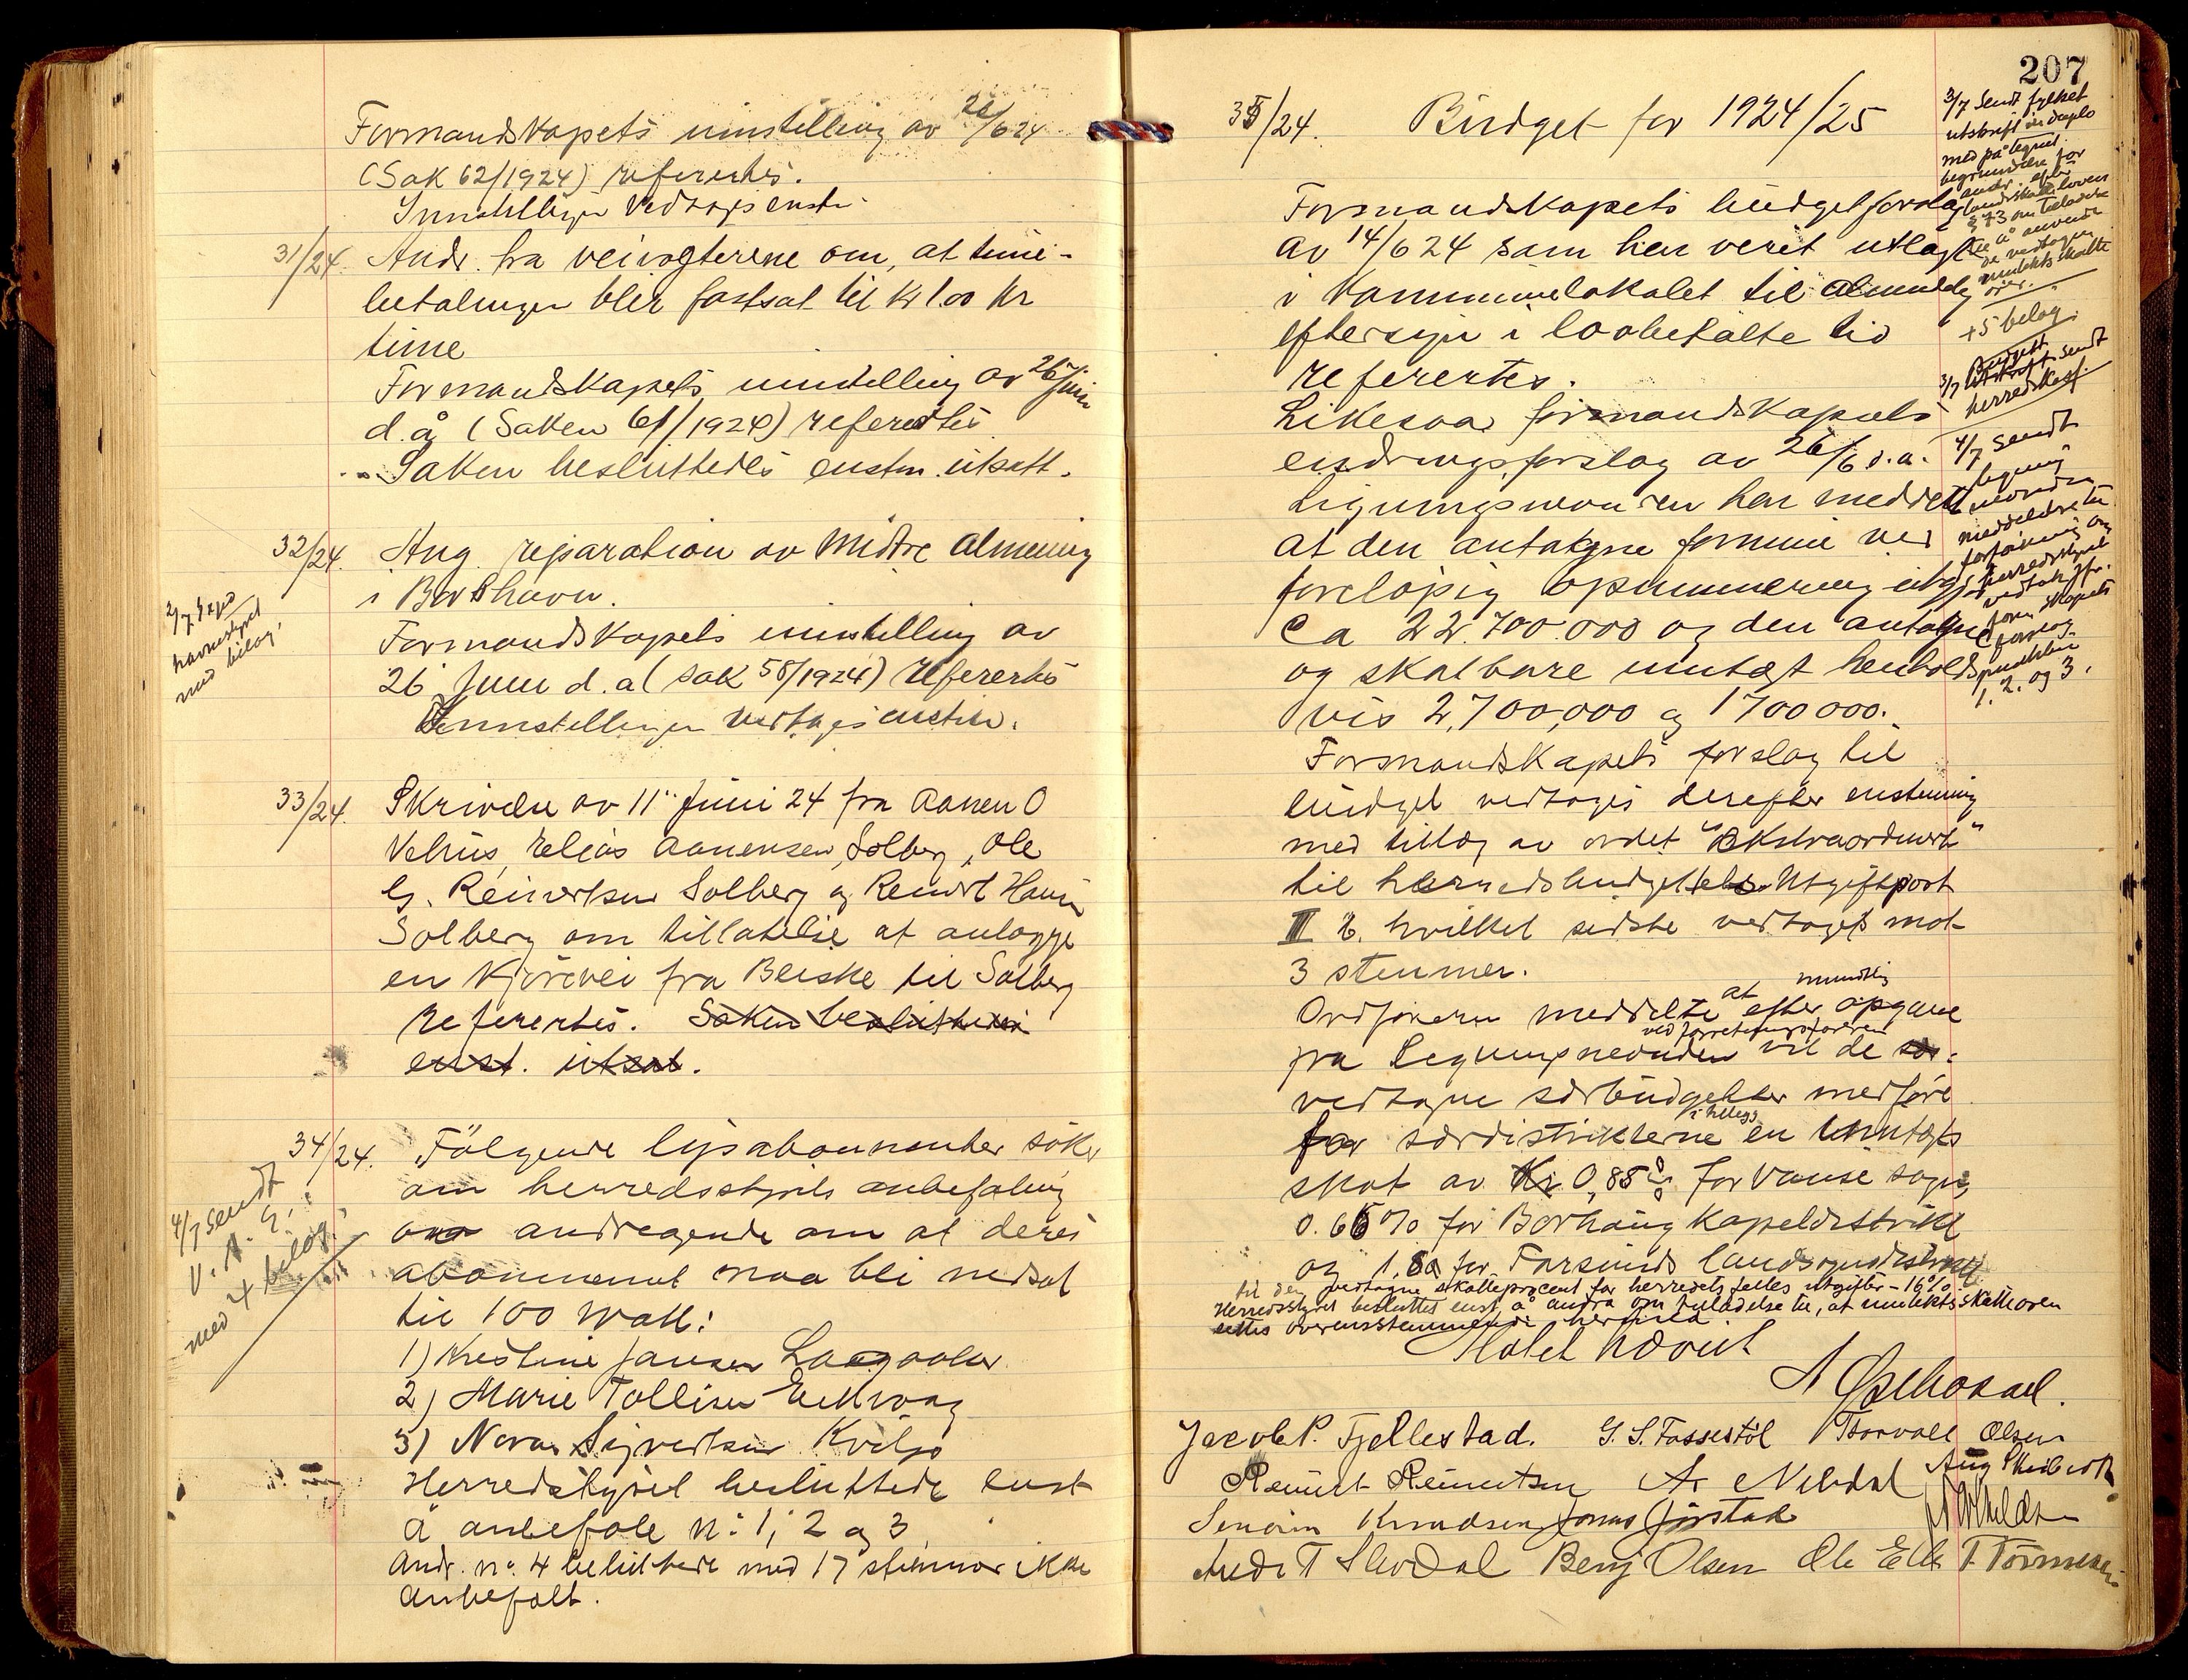 Formandskapets innstilling av 26/6 24
(Sak 62/1924) referertes.
Innstillingen vedtages enst.
31/24. Andr. fra veivogterene om, at time-
betalingen blir fastsat til Kr 1.00 pr
time
Formandskapets innstilling av 26 juni
d. å (Saken 61/1924) referertes
Saken besluttedes enstm. utsatt.
32/24. Ang. reparation av Midtre Almening
i Borshavn.
2/7. Sagd
havnestyret
med bilag.
Formandskapets innstilling av
26 Juni d. a (sak 58/1924) referertes
Innstillingen vedtages enstem.
33/24. Skrivelse av 11 Juni 24 fra Aanen O
Velhus, Elias Aanensen, Solberg, Ole
G. Reinertsen Solberg og Reinert Hansen
Solberg om tillatelse at anlægge
en kjörevei fra Beiske til Solberg
referertes. Saken besluttedes
enst. utsat.
34/24. Fölgende lysabonnenter söker
om herredsstyrets anbefaling
andragende om at deres
abonnement maa bli nedsat
til 100 Watt:
4/7 sendt
V. A. E.
med 4 bilag.
1) Kristine Jansen Langaaker
2) Marie Tollisen Eikvaag
3) Nora Sigvertsen Kviljo
Herredstyret besluttede enst
å anbefale nº 1, 2 og 3
Andr. nº 4 besluttede med 17 stemmer ikke
anbefalt.
207
35/24. Budget for 1924/25
3/7 Sendt fylket
utskrift in duplo
med påtegnet
begrundelse for
andr. efter
landsskatteloven
§ 73 om tilladelse
til å anvende
de vedtagne
inntektsskatte
ører.
+5 bilag.
3/7 Budgett
utskrift sendt
herredskass.
4/7 sendt
ligning
nevnden
meddelelse til
forføining og
herredstyrets
vedtak ifr.
form. skapets
forslag
punkter
1. 2. og 3.
Formandskapets budgetforslag
av 14/6 24 som har verit utlagt
i kommunelokalet til almindelig
eftersyn i lovbefalte tid
referertes.
Likesaa formandskapets
endringsforslag av 26/6 d.a.
Ligningsnevnden har meddelt
at den antagne formue ved
foreløpig opsummering utgjør
Ca 22.700.000 og den antagne
og skatbare inntægt henholds
vis 2,700,000 og 1700000.
Formandskapets forslag til
budget vedtoges derefter enstemmig
med tillæg av ordet "Ekstraordinært"
til herredsbudgettets Utgiftpost
III b. hvilket sidste vedtoges mot
3 stemmer.
Ordføreren meddelte at efter mundtlig opgave
fra Ligningsnevnden ved forretningsføreren vil de
vedtagne særbudgetter medføre
for særdistriktene i tillegg en inntægts
skat av 0,85 % for Vanse sogn,
0.65 % for Borhaug Kapeldistrikt
og 1.80 for Farsunds landsognsdistrikt
til den vedtagne skatteprocent for herredets felles utgifter – 16 %
Herredsstyret besluttet enst. å andra om tilladelse til, at inntektsskatteøren
settes overensstemmende hermed
Møtet hævet
A Østhassel.
Jacob P. Fjellestad. G. S. Tossestöl Thorvald Olsen
Reinert Reinertsen A. Nebdal Aug
Severin Knudsen Jonas Jørstad
Andr T Slevdal Benj Olsen Ole Eik T. Tönnesen